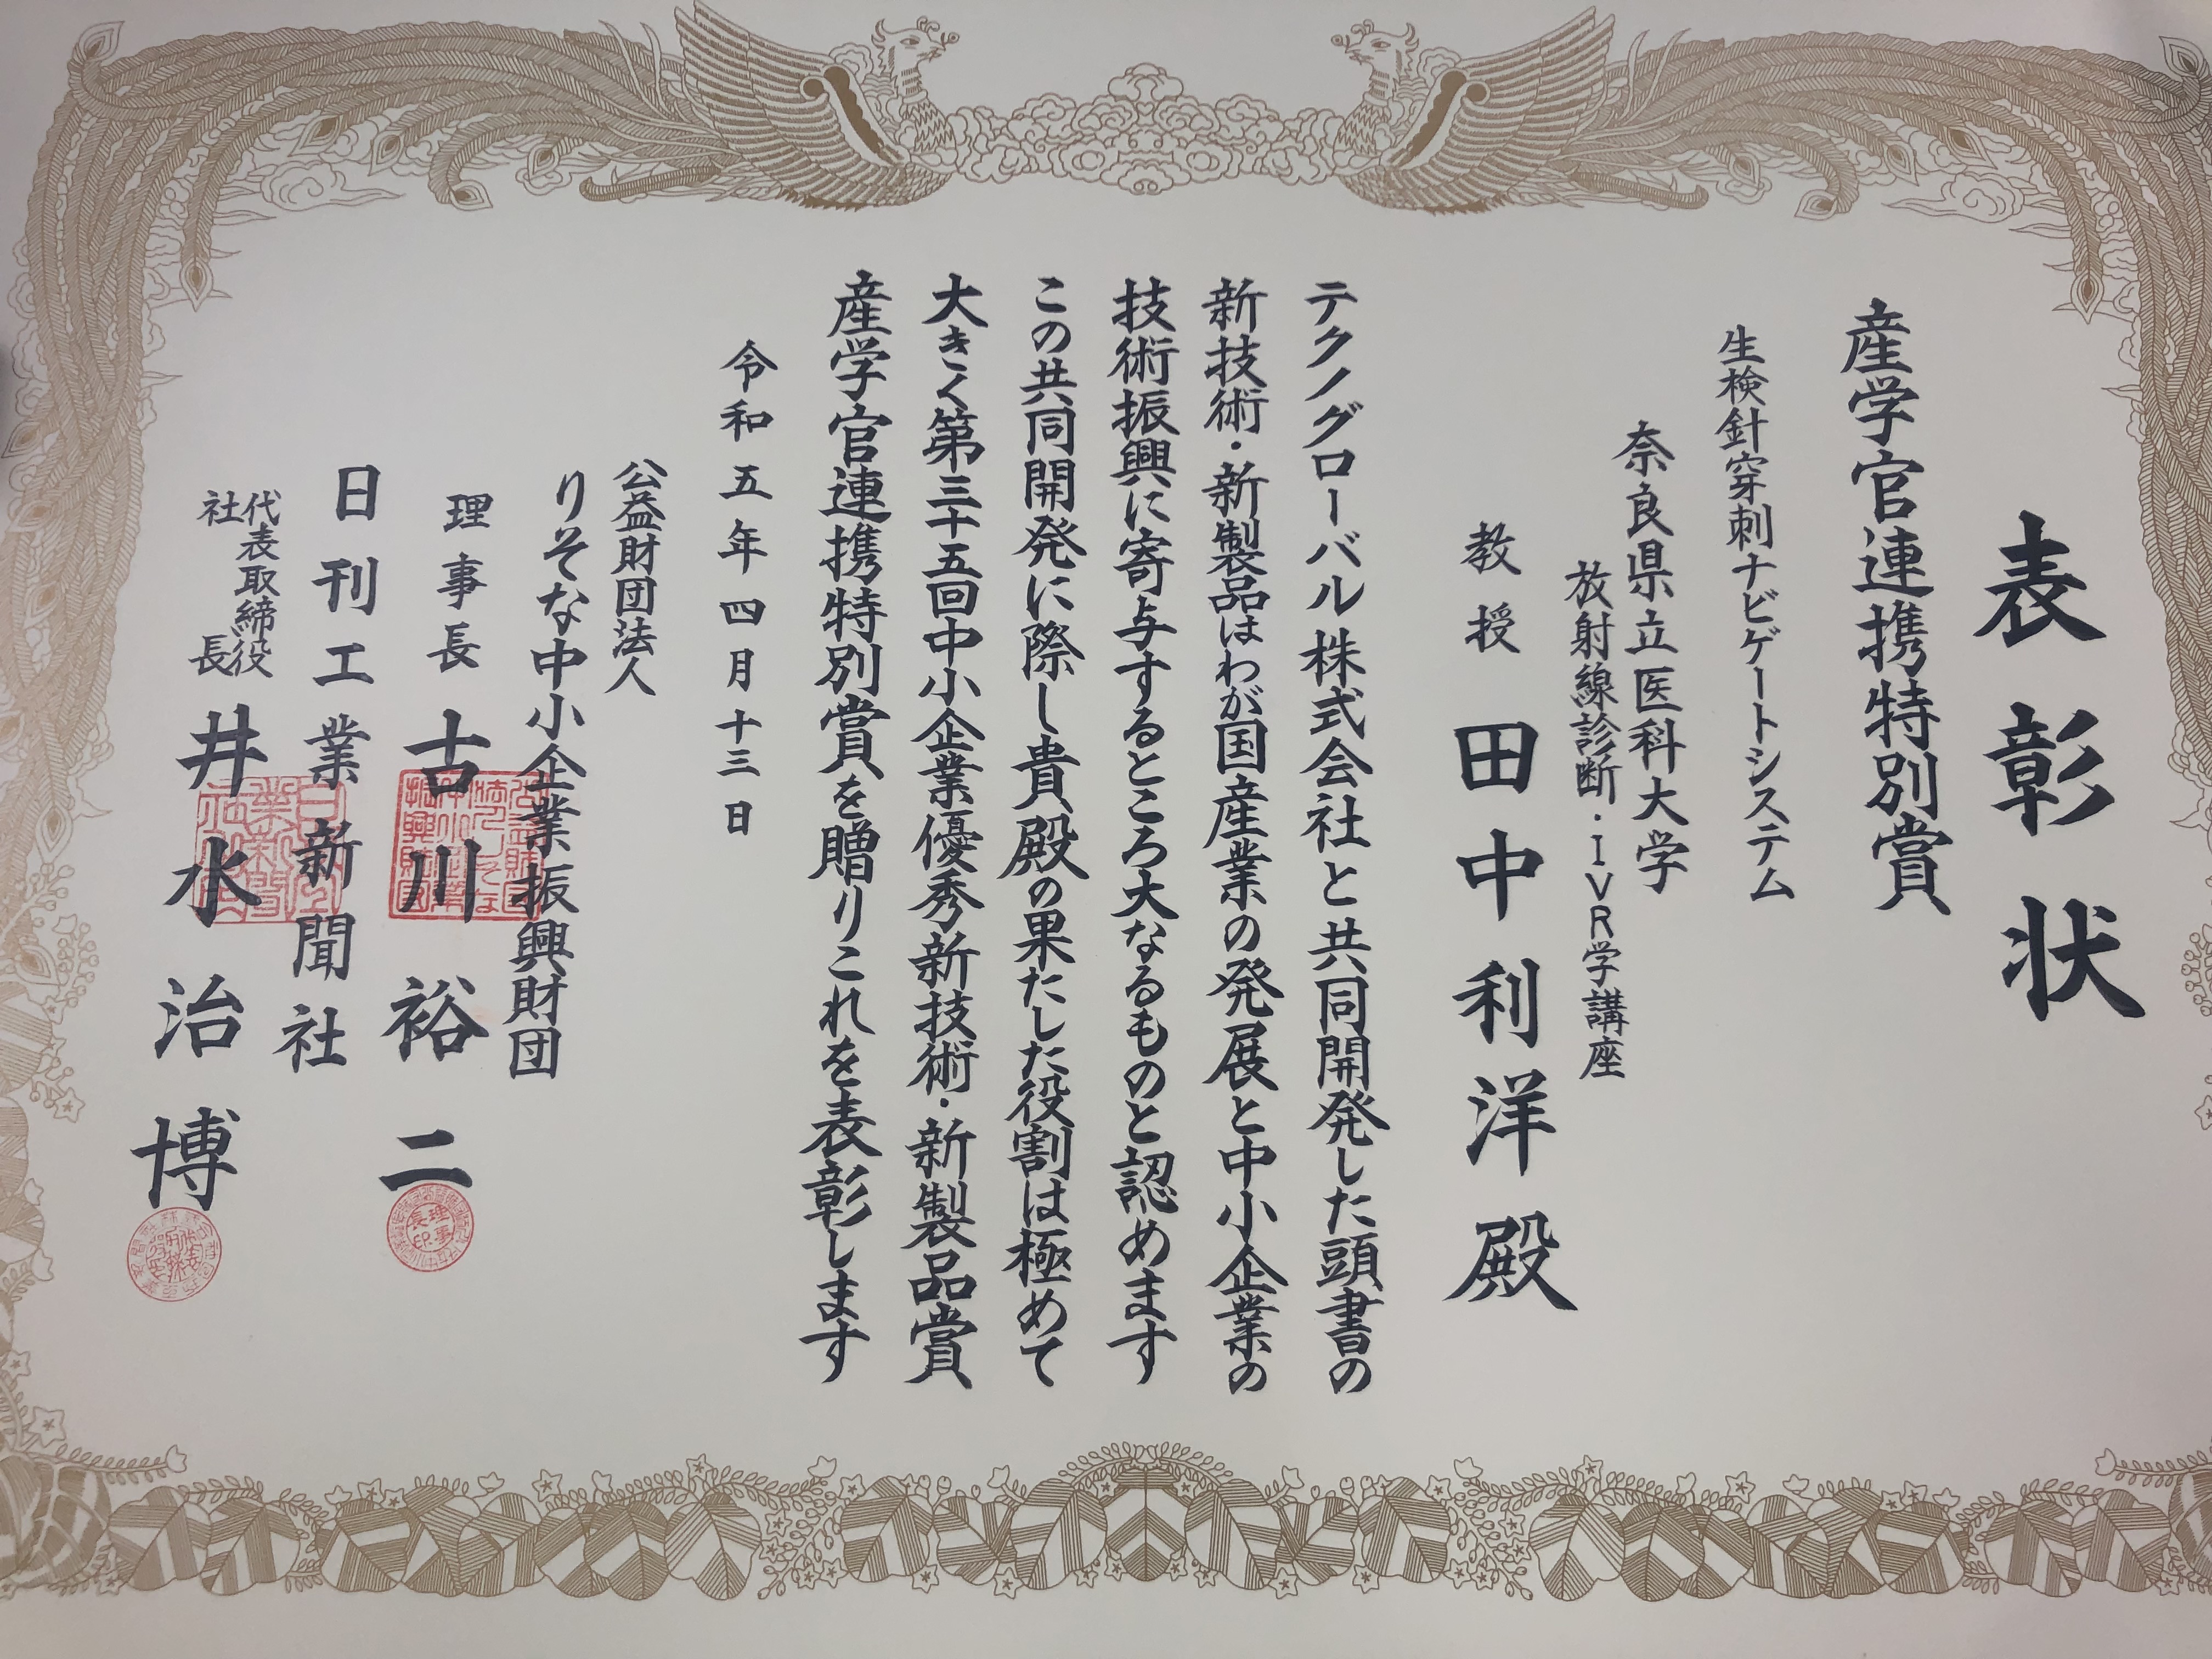 表彰状
産学官連携特別賞
生検針穿刺ナビゲートシステム
奈良県立医科大学
放射線診断・IVR学講座
教授 田中利洋殿
テクノグローバル株式会社と共同開発した頭書の
新技術・新製品はわが国産業の発展と中小企業の
技術振興に寄与するところ大なるものと認めます
この共同開発に際し貴殿の果たした役割は極めて
大きく第三十五回中小企業優秀新技術・新製品賞
産学官連携特別賞を贈りこれを表彰します
令和五年四月十三日
公益財団法人
りそな中小企業振興財団
理事長 古川裕二
日刊工業新聞社
代表取締役
社長 井水治博
理事長印